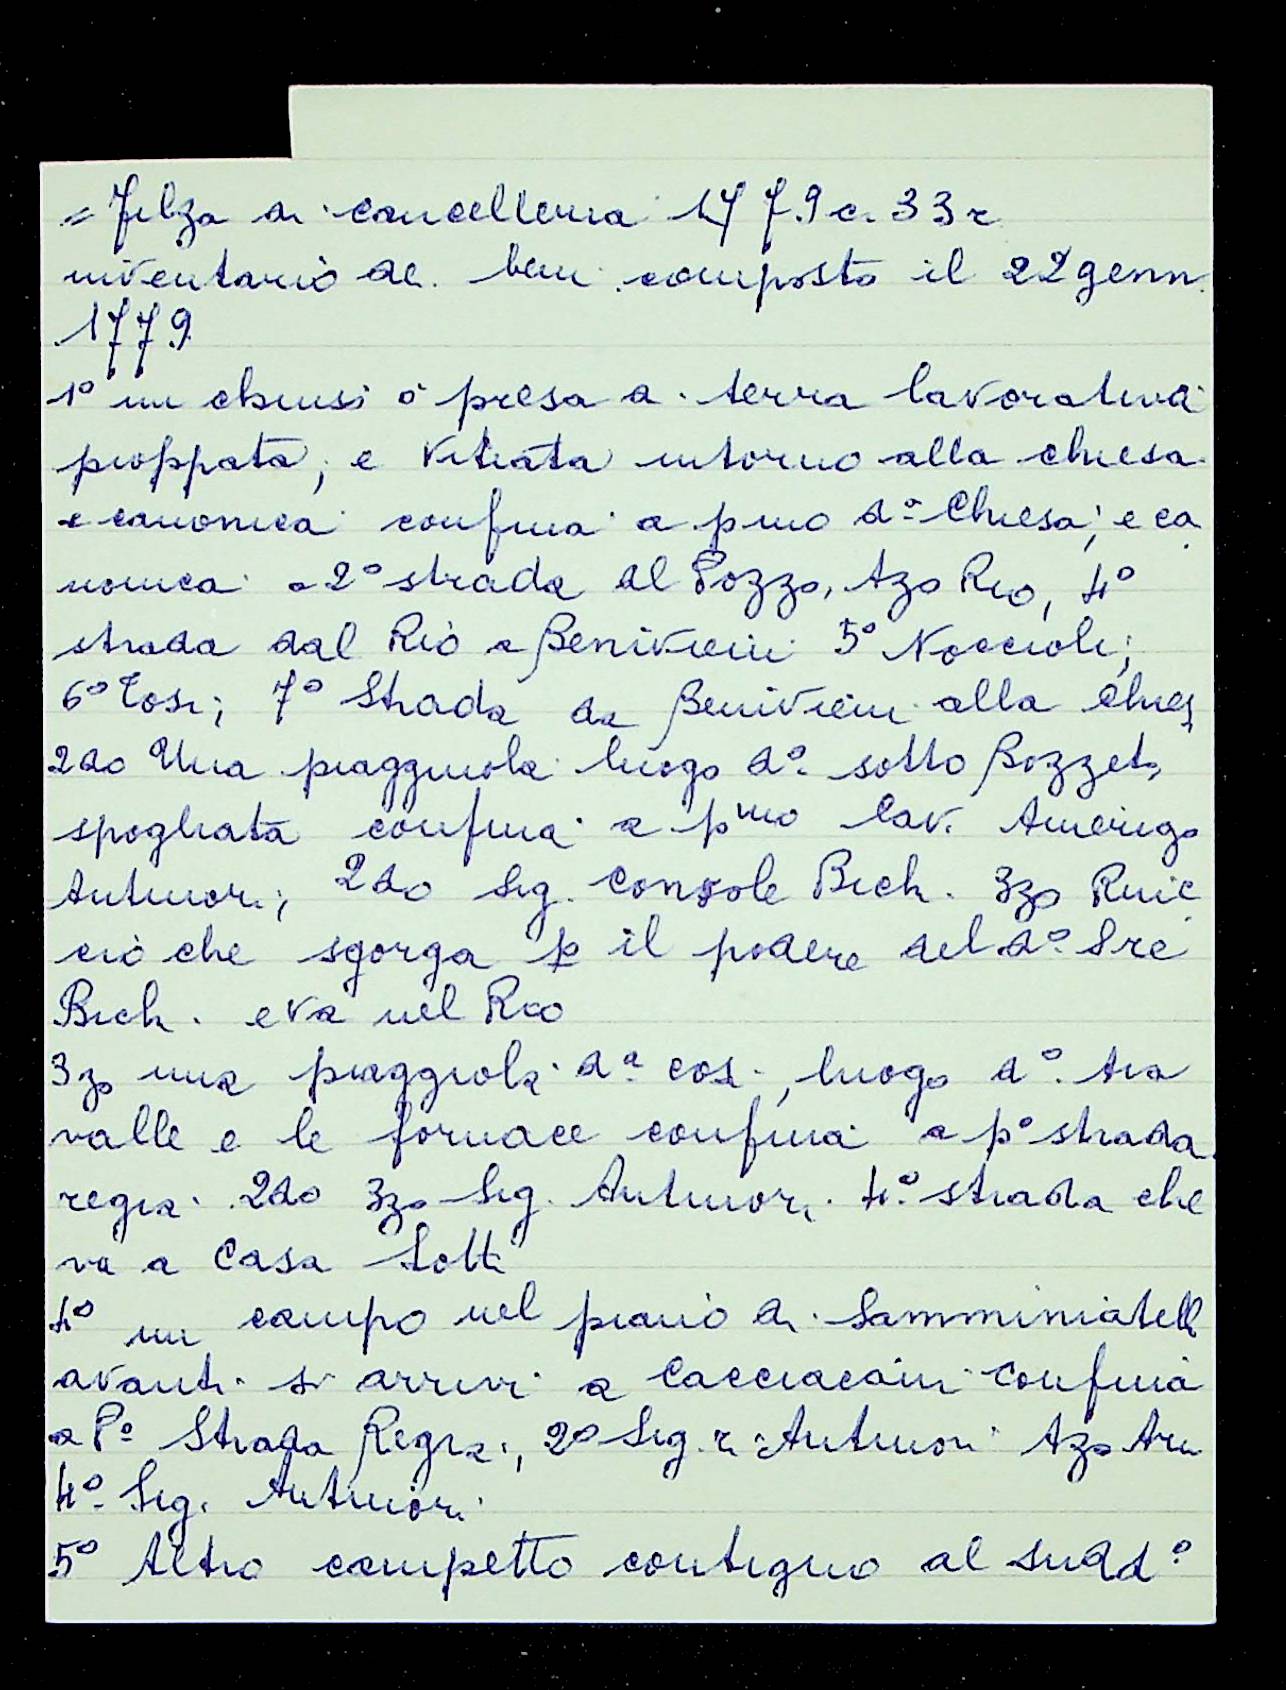 = Filza di cancelleria 1779 c. 33 r
inventario dei beni composto il 22 genn.
1779
1° un chiusi o presa di terra lavorativa
pioppata, e vitiata intorno alla chiesa
e canonica confina a pmo da Chiesa, e ca
nonica a 2° strada al Pozzo, 3zo Rio, 4°
strada dal Rio a Benivieni 5° Noccioli;
6° Tosi; 7° Strada da Benivieni alla Chies
2do Una piaggiola luogo d° sotto Bozzeto
spogliata confina a pmo Cav. Amerigo
Antinori; 2do Sig. Console Bich. 3zo Ruic
ciò che sgorga p il podere del d° Sre
Bich. e va nel Rio
3zo una piaggiola da cosi, luogo d° tra
valle e le fornace confina a p° strada
regia. 2do 3zo Sig. Antinori. 4° strada che
va a Casa Lotti
4° un campo nel piano di Samminiatelli
avanti si arrivi a Cacciacani confina
a P° Strada Regia, 2° Sig. r. Antinori 3zo Arn
4° Sig. Antinori.
5° Altro campetto contiguo al sudd°